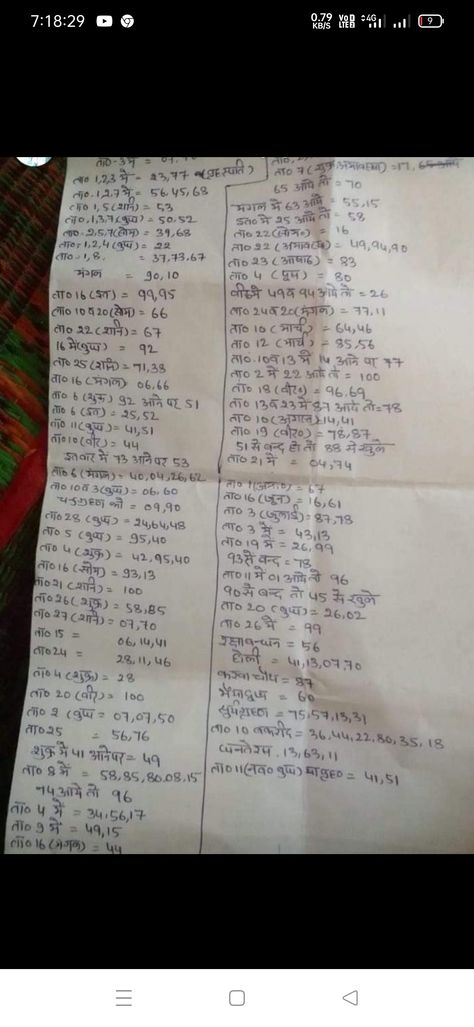 7:18:29
0.79 KB/S
4G
9
ता० 1,2,3 में = 23,77
ता०.1,2,7 में = 56,45,68
ता०.1,5 (शनि) = 53
ता०.1,3,7 (बुध) = 50,52
ता०.2,5,7 (सोम) = 39,68
ता०-1,2,4 (बुध) = 22
ता०-1,8. = 37,73,67
मंगल = 90,10
ता० 16 (इत) = 99,95
ता० 10 व 20 (सोम) = 66
ता० 22 (शनि) = 67
16 में (बुध) = 92
ता० 25 (शनि) = 71,38
ता० 16 (मंगल) = 06,66
ता० 6 (शुक्र) 92 आने पर 51
ता० 6 (इत) = 25,52
ता० 11 (बुध) = 41,51
ता० 10 (वीर) = 44
इतवार में 73 आने पर 53
ता० 6 (मंगल) = 40,04,26,62
ता० 10 व 3 (बुध) = 06,60
चन्द्रग्रहण को = 09,90
ता० 28 (बुध) = 24,64,48
ता० 5 (बुध) = 95,40
ता० 4 (शुक्र) = 42,95,40
ता० 16 (सोम) = 93,13
ता० 21 (शनि) = 100
ता० 26 (शुक्र) = 58,85
ता० 27 (शनि) = 07,70
ता० 15 = 06,14,41
ता० 24 = 28,11,46
ता० 4 (शुक्र) = 28
ता० 20 (वीर) = 100
ता० 2 (बुध) = 07,07,50
ता० 25 = 56,76
शुक्र में 41 आने पर = 49
ता० 8 में = 58,85,80,08,15
94 आये तो 96
ता० 4 में = 34,56,17
ता० 9 में = 49,15
ता० 16 (मंगल) = 44
ता० 7 (शुक्र अमावस्या) = 17,
65 आये तो = 70
मंगल में 63 आये = 55,15
इत० में 25 आये तो = 58
ता० 22 (सोम०) = 16
ता० 22 (अमावस्या) = 49,94,90
ता० 23 (आषाढ़) = 83
ता० 4 (बुध) = 80
वीर में 49 व 94 आये तो = 26
ता० 24 व 20 (मंगल) = 77,11
ता० 10 (मार्च) = 64,46
ता० 12 (मार्च) = 85,56
ता० 10 व 13 में 14 आने पर 77
ता० 2 में 22 आये तो = 100
ता० 18 (वीर०) = 96,69
ता० 13 व 23 में 87 आये तो = 78
ता० 10 (अगस्त) = 14,41
ता० 19 (वीर०) = 78,87
51 से बन्द हो तो 88 में खुले
ता० 21 में = 04,74
= 67
ता० 16 (जून) = 16,61
ता० 3 (जुलाई) = 87,78
ता० 3 में = 43,13
ता० 19 में = 26,99
93 से बन्द = 78
ता० 11 में 01 आये तो 96
90 से बन्द तो 45 से खुले
ता० 20 (बुध) = 26,02
ता० 26 में = 99
रक्षाबन्धन = 56
होली = 41,13,07,70
करवा चौथ = 87
भैयादूज = 60
सूर्यग्रहण = 75,57,13,31
ता० 10 बकरीद = 36,44,22,80,35,18
धनतेरस, 13,63,11
ता० 11 = 41,51